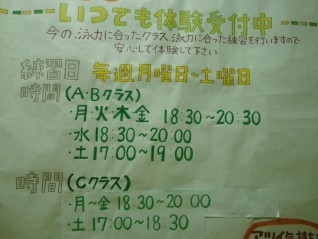 いつでも体験受付中
今の泳力に合ったクラス、泳力に合った練習を行いますので
安心して体験して下さい
練習日 毎週月曜日～土曜日
時間(A・Bクラス)
・月火木金 18:30～20:30
・水 18:30～20:00
・土 17:00～19:00
時間(Cクラス)
・月～金 18:30～20:00
・土 17:00～18:30